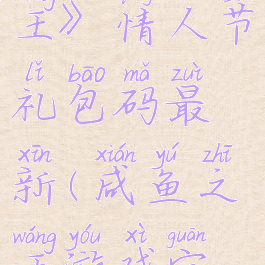 王》情人节
lǐ bāo mǎ zuì
礼包码最
xīn xián yú zhī
新(咸鱼之
wáng yóu xì guān